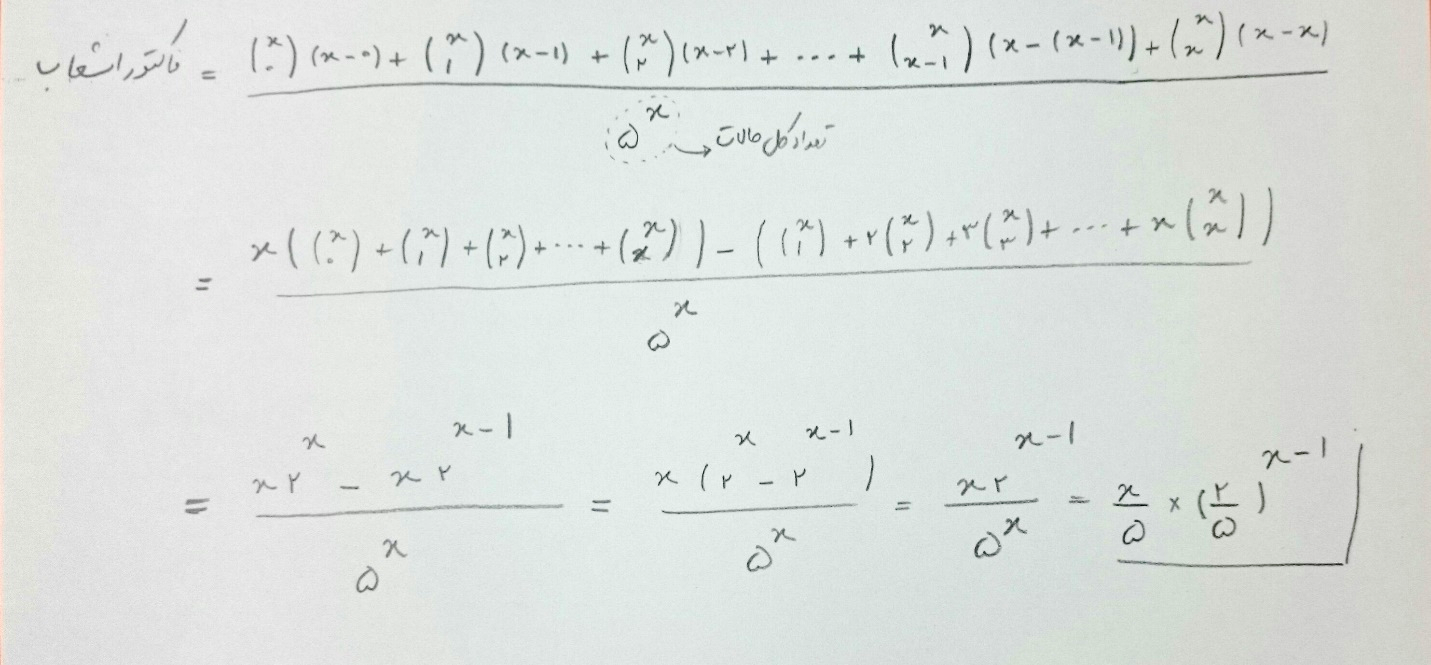 فاکتور انشعاب = ((x ۰)(x-۰) + (x ۱)(x-۱) + (x ۲)(x-۲) + ... + (x x-۱)(x-(x-۱)) + (x x)(x-x)) / ۵^x
۵^x → تعداد کل حالات
= (x((x ۰) + (x ۱) + (x ۲) + ... + (x x)) - ((x ۱) + ۲(x ۲) + ۳(x ۳) + ... + x(x x))) / ۵^x
= (x۲^x - x۲^(x-۱)) / ۵^x = x(۲^x - ۲^(x-۱)) / ۵^x = x۲^(x-۱) / ۵^x = x/۵ × (۲/۵)^(x-۱)